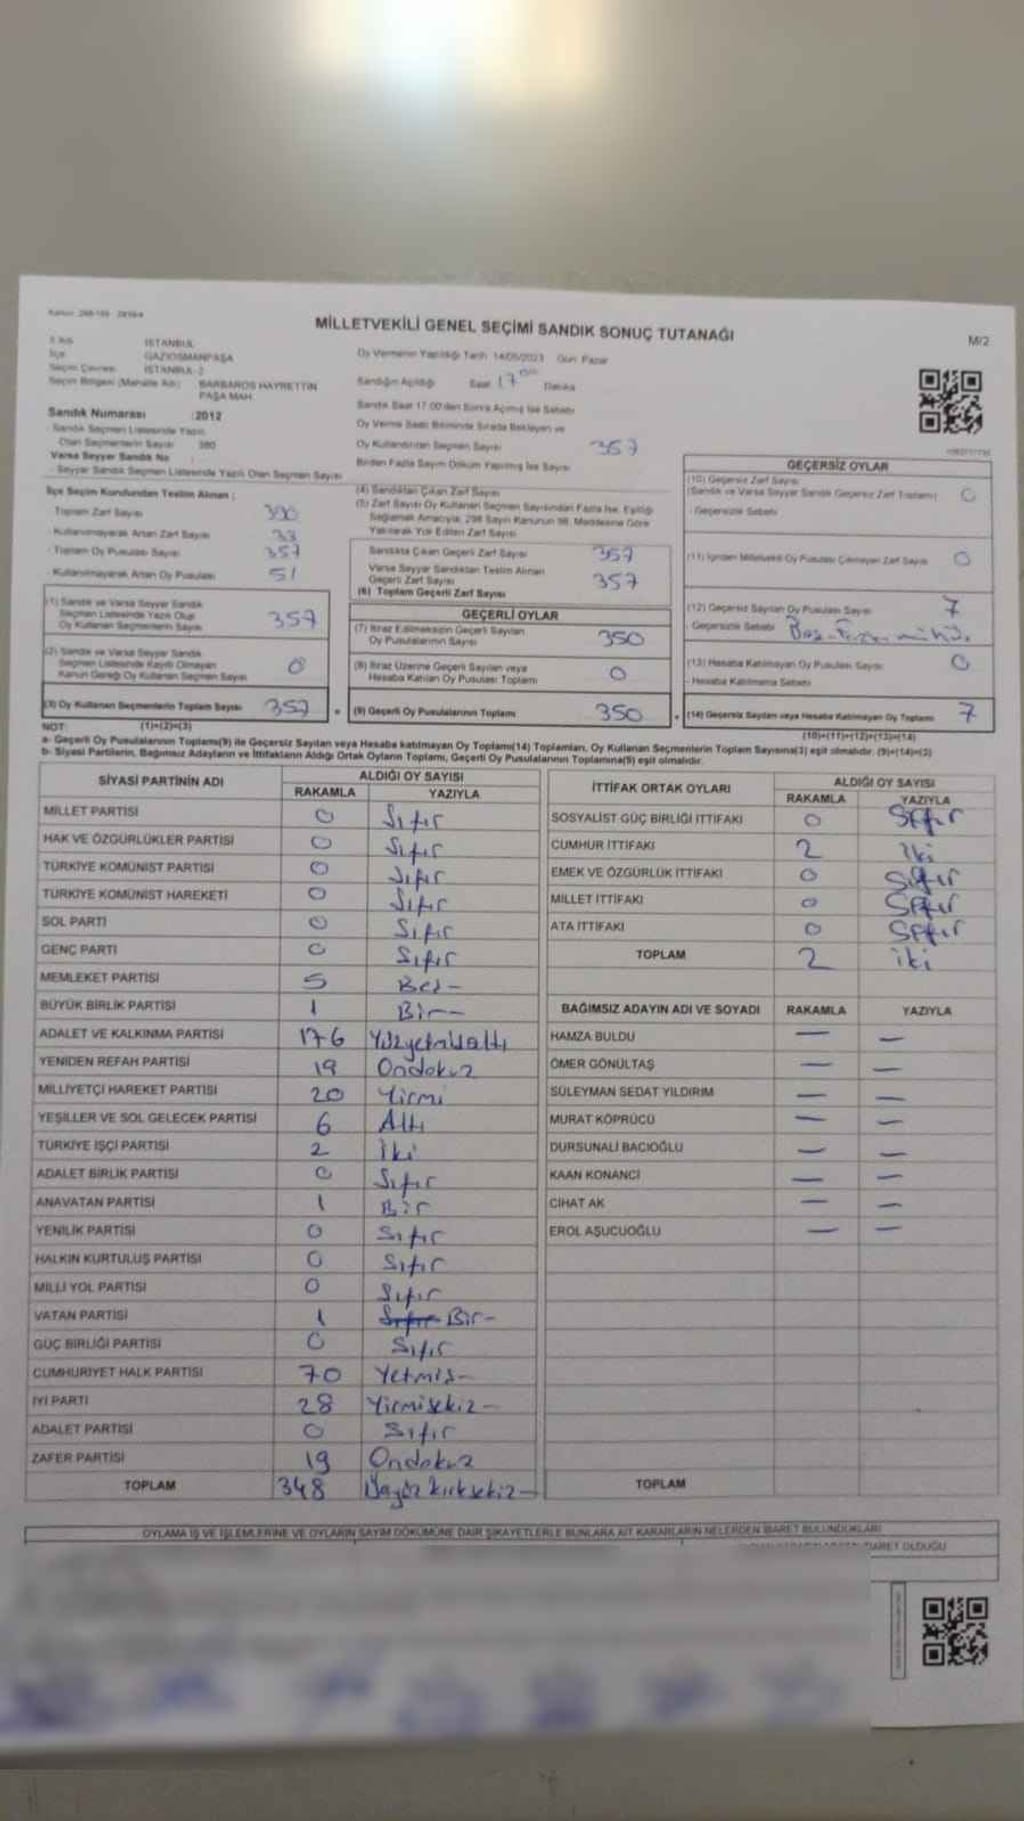 MİLLETVEKİLİ GENEL SEÇİMİ SANDIK SONUÇ TUTANAĞI
M/2
İli Adı İSTANBUL
İlçe GAZİOSMANPAŞA
Seçim Çevresi İSTANBUL-2
Seçim Bölgesi (Mahalle Adı) BARBAROS HAYRETTİN PAŞA MAH.
Sandık Numarası :2012
Sandık Seçmen Listesinde Yazılı
Olan Seçmenlerin Sayısı 380
Varsa Seyyar Sandık No
Seyyar Sandık Seçmen Listesinde Yazılı Olan Seçmen Sayısı
Oy Vermenin Yapıldığı Tarih 14/05/2023 Gün Pazar
Sandığın Açıldığı Saat 17 00 Dakika
Sandık Saat 17:00'den Sonra Açılmış İse Sebebi
Oy Verme Saati Bitiminde Sırada Bekleyen ve
Oy Kullandırılan Seçmen Sayısı 357
Birden Fazla Sayım Döküm Yapılmış İse Sayısı
İlçe Seçim Kurulundan Teslim Alınan ;
Toplam Zarf Sayısı 390
Kullanılmayarak Artan Zarf Sayısı 33
Toplam Oy Pusulası Sayısı 357
Kullanılmayarak Artan Oy Pusulası 51
(1) Sandık ve Varsa Seyyar Sandık
Seçmen Listesinde Yazılı Olup
Oy Kullanan Seçmenlerin Sayısı 357
(2) Sandık ve Varsa Seyyar Sandık
Seçmen Listesinde Kayıtlı Olmayan
Kanun Gereği Oy Kullanan Seçmen Sayısı 0
(3) Oy Kullanan Seçmenlerin Toplam Sayısı 357
(1)+(2)=(3)
(4) Sandıktan Çıkan Zarf Sayısı
(5) Zarf Sayısı Oy Kullanan Seçmen Sayısından Fazla İse, Eşitliği
Sağlamak Amacıyla, 298 Sayılı Kanunun 98. Maddesine Göre
Yakılarak Yok Edilen Zarf Sayısı
Sandıkta Çıkan Geçerli Zarf Sayısı 357
Varsa Seyyar Sandıktan Teslim Alınan
Geçerli Zarf Sayısı
(6) Toplam Geçerli Zarf Sayısı 357
GEÇERLİ OYLAR
(7) İtiraz Edilmeksizin Geçerli Sayılan
Oy Pusulalarının Sayısı 350
(8) İtiraz Üzerine Geçerli Sayılan veya
Hesaba Katılan Oy Pusulası Toplamı 0
(9) Geçerli Oy Pusulalarının Toplamı 350
GEÇERSİZ OYLAR
(10) Geçersiz Zarf Sayısı
(Sandık ve Varsa Seyyar Sandık Geçersiz Zarf Toplamı) 0
Geçersizlik Sebebi
(11) İçinden Milletvekili Oy Pusulası Çıkmayan Zarf Sayısı 0
(12) Geçersiz Sayılan Oy Pusulası Sayısı 7
Geçersizlik Sebebi
(13) Hesaba Katılmayan Oy Pusulası Sayısı 0
Hesaba Katılmama Sebebi
(14) Geçersiz Sayılan veya Hesaba Katılmayan Oy Toplamı 7
(10)+(11)+(12)+(13)=(14)
NOT:
a- Geçerli Oy Pusulalarının Toplamı(9) ile Geçersiz Sayılan veya Hesaba katılmayan Oy Toplamı(14) Toplamları, Oy Kullanan Seçmenlerin Toplam Sayısına(3) eşit olmalıdır. (9)+(14)=(3)
b- Siyasi Partilerin, Bağımsız Adayların ve İttifakların Aldığı Ortak Oyların Toplamı, Geçerli Oy Pusulalarının Toplamına(9) eşit olmalıdır.
SİYASİ PARTİNİN ADI ALDIĞI OY SAYISI
RAKAMLA YAZIYLA
MİLLET PARTİSİ 0 Sıfır
HAK VE ÖZGÜRLÜKLER PARTİSİ 0 Sıfır
TÜRKİYE KOMÜNİST PARTİSİ 0 Sıfır
TÜRKİYE KOMÜNİST HAREKETİ 0 Sıfır
SOL PARTİ 0 Sıfır
GENÇ PARTİ 0 Sıfır
MEMLEKET PARTİSİ 5 Beş-
BÜYÜK BİRLİK PARTİSİ 1 Bir-
ADALET VE KALKINMA PARTİSİ 176 Yüzyetmişaltı
YENİDEN REFAH PARTİSİ 19 Ondokuz
MİLLİYETÇİ HAREKET PARTİSİ 20 Yirmi
YEŞİLLER VE SOL GELECEK PARTİSİ 6 Altı
TÜRKİYE İŞÇİ PARTİSİ 2 İki
ADALET BİRLİK PARTİSİ 0 Sıfır
ANAVATAN PARTİSİ 1 Bir
YENİLİK PARTİSİ 0 Sıfır
HALKIN KURTULUŞ PARTİSİ 0 Sıfır
MİLLİ YOL PARTİSİ 0 Sıfır
VATAN PARTİSİ 1 Sıfır Bir-
GÜÇ BİRLİĞİ PARTİSİ 0 Sıfır
CUMHURİYET HALK PARTİSİ 70 Yetmiş-
İYİ PARTİ 28 Yirmisekiz-
ADALET PARTİSİ 0 Sıfır
ZAFER PARTİSİ 19 Ondokuz
TOPLAM 348 Üçyüz kırksekiz-
İTTİFAK ORTAK OYLARI ALDIĞI OY SAYISI
RAKAMLA YAZIYLA
SOSYALİST GÜÇ BİRLİĞİ İTTİFAKI 0 Sıfır
CUMHUR İTTİFAKI 2 İki
EMEK VE ÖZGÜRLÜK İTTİFAKI 0 Sıfır
MİLLET İTTİFAKI 0 Sıfır
ATA İTTİFAKI 0 Sıfır
TOPLAM 2 iki
BAĞIMSIZ ADAYIN ADI VE SOYADI RAKAMLA YAZIYLA
HAMZA BULDU — —
ÖMER GÖNÜLTAŞ — —
SÜLEYMAN SEDAT YILDIRIM — —
MURAT KÖPRÜCÜ — —
DURSUNALİ BACIOĞLU — —
KAAN KONANCI — —
CİHAT AK — —
EROL AŞUCUOĞLU — —
TOPLAM
OYLAMA İŞ VE İŞLEMLERİNE VE OYLARIN SAYIM DÖKÜMÜNE DAİR ŞİKAYETLERLE BUNLARA AİT KARARLARIN NELERDEN İBARET BULUNDUKLARI